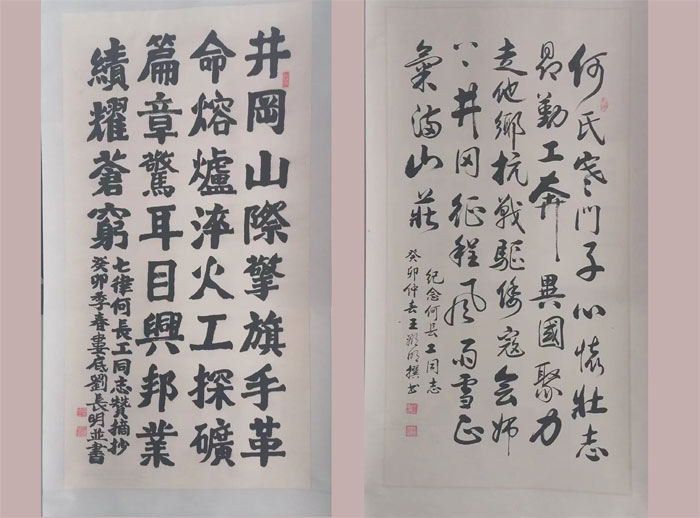 井岡山際擎旗手革
命熔爐淬火工探礦
篇章驚耳目興邦業
績耀蒼窮
七律何長工同志贊摘抄
癸卯季春婁底劉長明並書
何氏寒门子心懷壯志
昂勤工奔異國聚力
走他鄉抗戰驅倭寇会師
上井冈征程风雨雪正
氣滿山莊
纪念何长工同志
癸卯仲春王明撰书